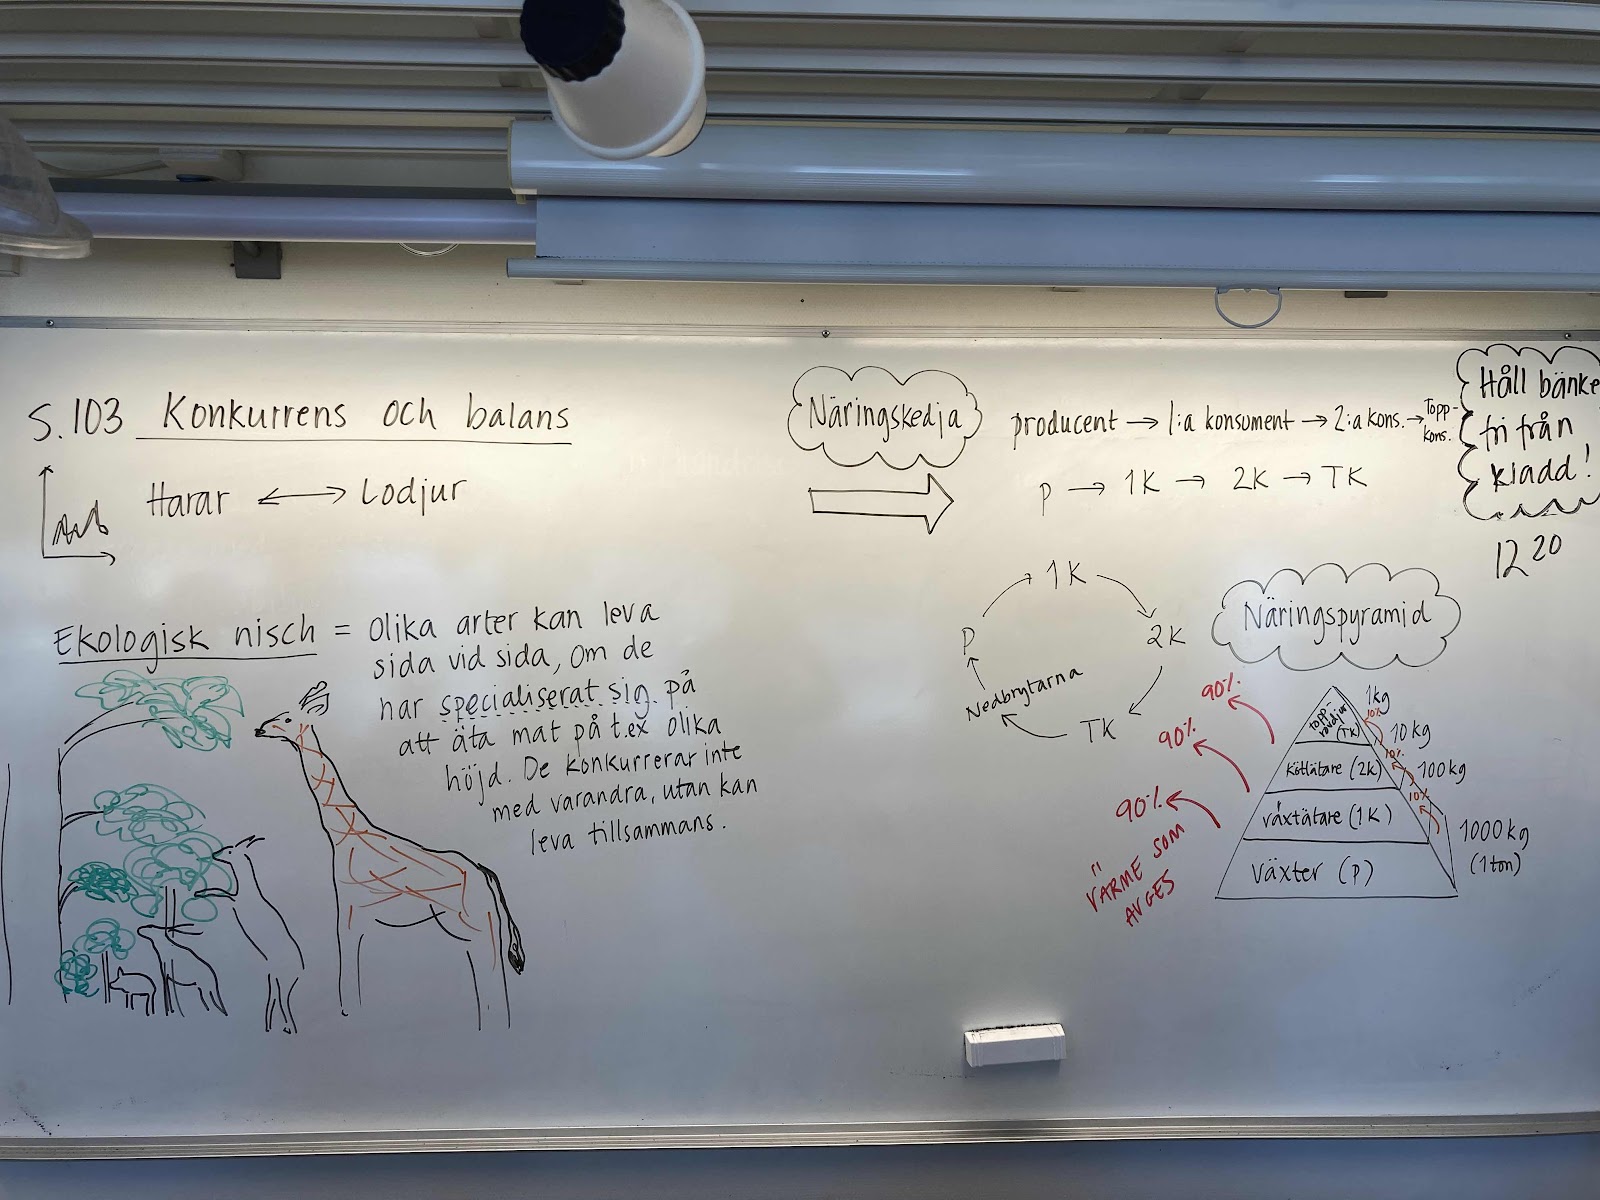 S.103 Konkurrens och balans
Harar ⟷ Lodjur
Ekologisk nisch = olika arter kan leva
sida vid sida, om de
har specialiserat sig på
att äta mat på t.ex olika
höjd. De konkurrerar inte
med varandra, utan kan
leva tillsammans.
Näringskedja
producent → 1:a konsument → 2:a kons. → Topp-
kons.
P → 1K → 2K → TK
Håll bänke
fri från
kladd!
12 20
1K
P
2K
Nedbrytarna
TK
Näringspyramid
90%
90%
90%
VÄRME SOM
AVGES
topp-
rovdjur
(TK)
köttätare (2K)
växtätare (1K)
växter (P)
1kg
10%
10 kg
10%
100 kg
10%
1000 kg
(1 ton)